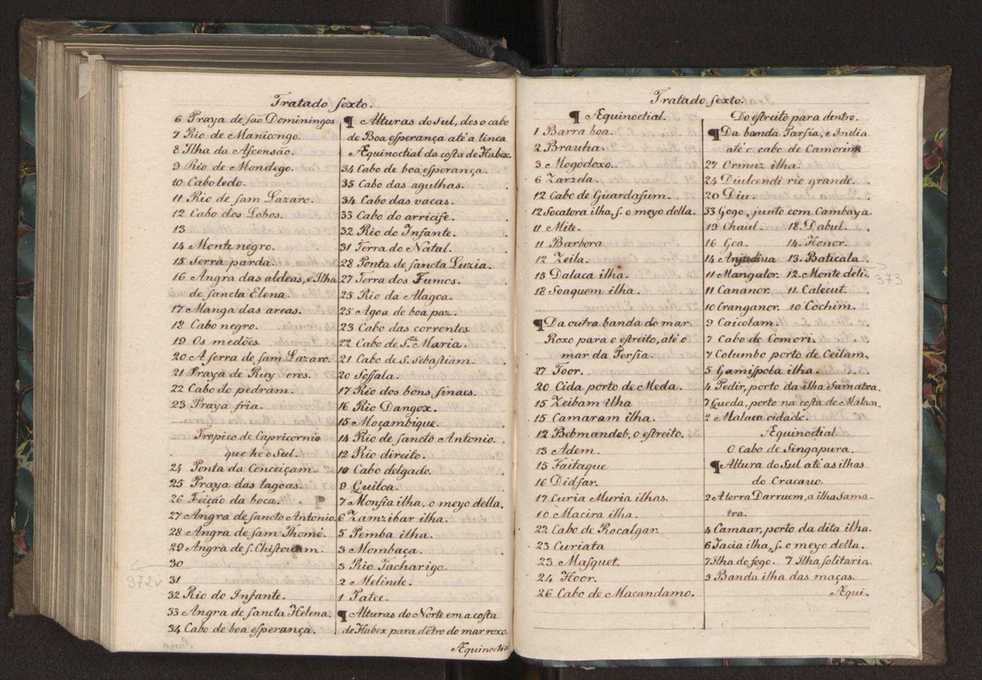 Tratado sexto.
6 Praya de são Dominingos
7 Rio de Manicongo.
8 Ilha da Ascensão.
9 Rio de Mondego.
10 Caboledo.
11 Rio de sam Lazaro.
12 Cabo dos Lobos.
13
14 Monte negro.
15 Serra parda.
16 Angra das aldeas, e Ilha
de sancta Elena.
17 Manga das areas.
18 Cabo negro.
19 Os medões
20 A serra de sam Lazaro.
21 Praya de Ruy eres.
22 Cabo de pedram.
23 Praya fria.
Tropico de Capricornio
que he o Sul.
24 Ponta da Conceiçam.
25 Praya das lagoas.
26 Feição da boca.
27 Angra de sancto Antonio.
28 Angra de sam Thomé.
29 Angra de s. Chistovam.
30
31
32 Rio do Infante.
33 Angra de sancta Helena.
34 Cabo de boa esperança.
372v
¶ Alturas do sul, des o cabo
de Boa esperança até a linea
Æquinoctial da costa de Habex
34 Cabo de boa esperança.
35 Cabo das agulhas.
34 Cabo das vacas.
33 Cabo do arricife.
32 Rio do Infante.
31 Terra do Natal.
28 Ponta de sancta Luzia.
27 Terra dos Fumos.
25 Rio da Alagoa.
25 Agoa de boa paz.
23 Cabo das correntes
22 Cabo de Sta. Maria.
21 Cabo de S. Sebastiam.
20 Soffala.
17 Rio dos bons sinaes.
16 Rio Dangox.
15 Moçambique.
14 Rio de sancto Antonio.
12 Rio direito.
10 Cabo delgado.
9 Quiloa.
7 Monfia ilha, o meyo della.
6 Zamzibar ilha.
5 Pemba ilha.
3 Mombaça.
3 Rio Tacharigo.
2 Melinde.
1 Patee.
¶ Alturas do Norte em a costa
de Habex para dẽtro do mar roxo.
Æquinoctia
Tratado sexto.
¶ Æquinoctial.
1 Barra boa.
2 Brauha.
3 Mogodoxo.
6 Zarzela.
12 Cabo de Guardafum.
12 Socatora ilha, s. o meyo della.
11 Mite.
11 Barbora
12 Zeila.
13 Dalaca ilha.
18 Soaquem ilha.
¶ Da outra banda do mar
Roxo para o estreito, até o
mar da Persia.
27 Toor.
20 Cida porto de Meda.
15 Zeibam ilha
15 Camaram ilha.
12 Bebmandeb, o estreito.
13 Adem.
15 Faitaque
16 Didfar.
17 Curia Muria ilhas.
10 Macira ilha.
22 Cabo de Rocalgar.
23 Curiata
23 Masquet.
24 Hoor.
26 Cabo de Macandamo.
Do estreito para dentro.
¶ Da banda Parsia, e India
até o cabo de Camorim
27 Ormuz ilha.
24 Diulcendi rio grande.
20 Diu.
33 Gogo, junto com Cambaya
19 Chaul. 18 Dabul.
16 Goa. 14. Honor.
14 Anjadiva 13. Baticala.
11 Mangalor. 12. Monte deli.
11 Cananor. 11 Calecut.
10 Cranganor. 10 Cochim.
9 Caicolam.
7 Cabo de Comori.
7 Columbo porto de Ceilam.
5 Gamispola ilha.
4 Pedir, porto da ilha Samatra.
7 Gueda, porto na costa de Malaca.
2 Malaca cidade.
Æquinoctial.
O Cabo de Singapura.
¶ Altura do Sul até as ilhas
do Cracavo.
2 a terra Darruem, a ilha Sama-
tra.
4 Camaar, porto da dita ilha.
6 Iacia ilha, s. o meyo della.
7 Ilha do fogo. 7 Ilha solitaria.
3 Banda ilha das maças.
Æqui-
373